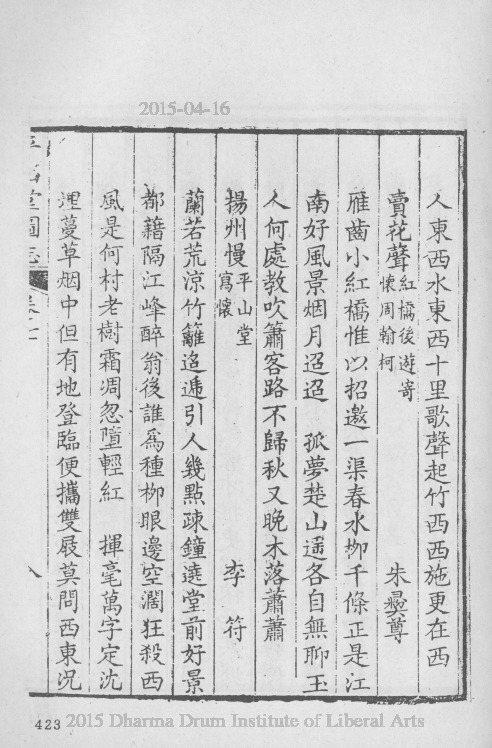 2015-04-16
人東西水東西十里歌聲起竹西西施更在西
賣花聲 紅橋後遊寄懷周翰柯 朱彛尊
雁齒小紅橋惟以招邀一渠春水柳千條正是江
南好風景烟月迢迢 孤夢楚山遥各自無聊玉
人何處教吹簫客路不歸秋又晚木落蕭蕭
揚州慢 平山堂寫懷 李符
蘭若荒涼竹籬迢遞引人幾點疎鐘遶堂前好景
都藉隔江峰醉翁後誰爲種柳眼邊空濶狂殺西
風是何村老樹霜凋忽墮輕紅 揮毫萬字定沈
埋蔓草烟中但有地登臨便攜雙屐莫問西東況
平山堂圖志 卷十一 八
423 2015 Dharma Drum Institute of Liberal Arts